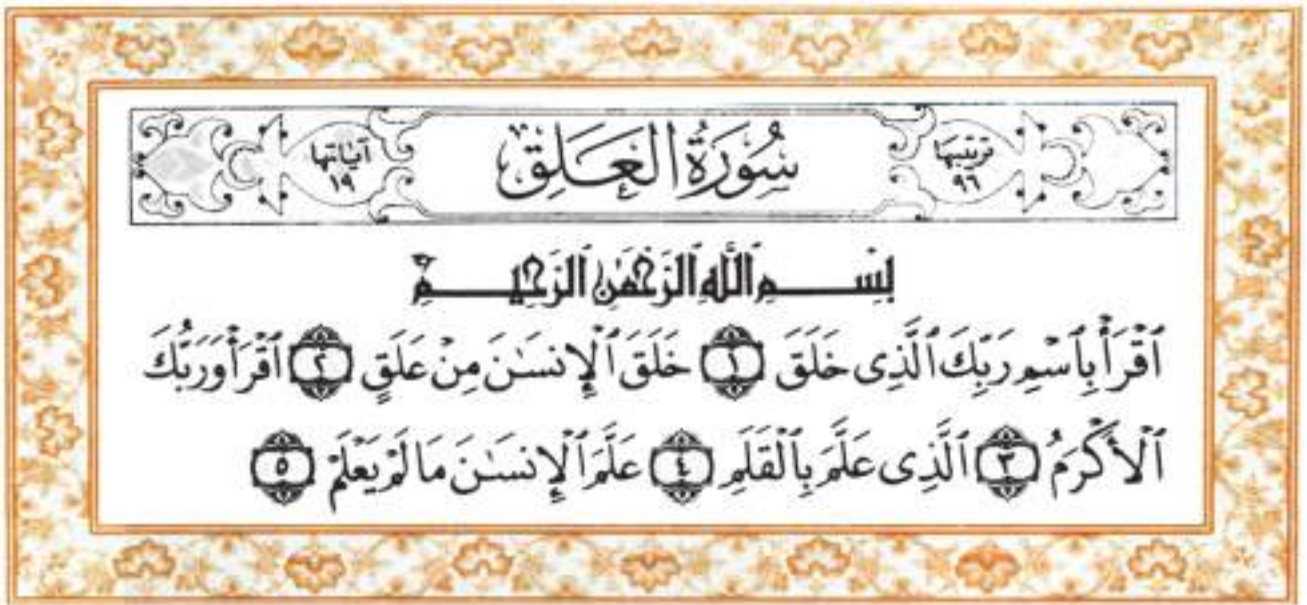 ترتيبها ٩٦ سُورَةُ العَلَقِ آيَاتها ١٩
بِسْمِ ٱللَّهِ ٱلرَّحْمَٰنِ ٱلرَّحِيمِ
ٱقْرَأْ بِٱسْمِ رَبِّكَ ٱلَّذِى خَلَقَ ١ خَلَقَ ٱلْإِنسَٰنَ مِنْ عَلَقٍ ٢ ٱقْرَأْ وَرَبُّكَ
ٱلْأَكْرَمُ ٣ ٱلَّذِى عَلَّمَ بِٱلْقَلَمِ ٤ عَلَّمَ ٱلْإِنسَٰنَ مَا لَمْ يَعْلَمْ ٥